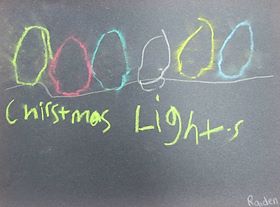 Chirstmas Light.s
Raiden